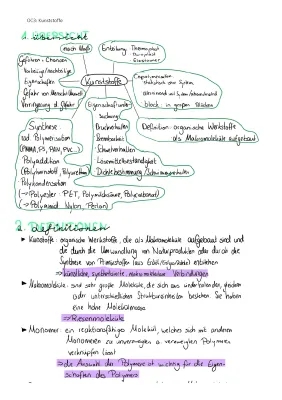 OC3: Kunststoffe
1. ÜBERSICHT
übersicht
nach
Einteilung: Thermoplast
- Duroplast
- Elastomer
Gefahren - Chancen
Vorteile/nachteilige
Eigenschaften
Gefahr von
Verringerung d. Gefahr
Kunststoffe
block: in großen Blöcken
Eigenschaftsunter-
suchung
Bruchverhalten
Brennbarkeit
Schmelzverhalten
Lösemittelbeständigkeit
Dichtebestimmung
Definition: organische Werkstoffe
als Makromoleküle aufgebaut
Synthese
rad. Polymerisation
(PMMA, PS, PAN, PVC...)
Polyaddition
(Polyharnstoff, Polyurethan)
Polykondensation
(→ Polyester: PET, Polymilchsäure, Polycarbonat)
(→ Polyamid: Nylon, Perlon)
2. DEFINITIONEN
definitionen
► Kunstoffe: organische Werkstoffe, die als Makromoleküle aufgebaut sind und
die durch die Umwandlung von Naturprodukten oder durch die
Synthese von Primärstoffen aus Erdöl/Erdgas/Kohle) entstehen
⇒ künstliche, synthetisierte, makromolekulare Verbindungen
► Makromoleküle: sind sehr große Moleküle, die sich aus untereinander, gleichen
oder unterschiedlichen Struktureinheiten bestehen. Sie haben
eine hohe Molekülmasse
⇒ Riesenmoleküle
► Monomer: ein reaktionsfähiges Molekül, welches sich mit anderen
Monomeren zu unverzweigten o. verzweigten Polymeren
verknüpfen lässt
⇒ die Auswahl der Monomere ist wichtig für die Eigen-
schaften des Polymers